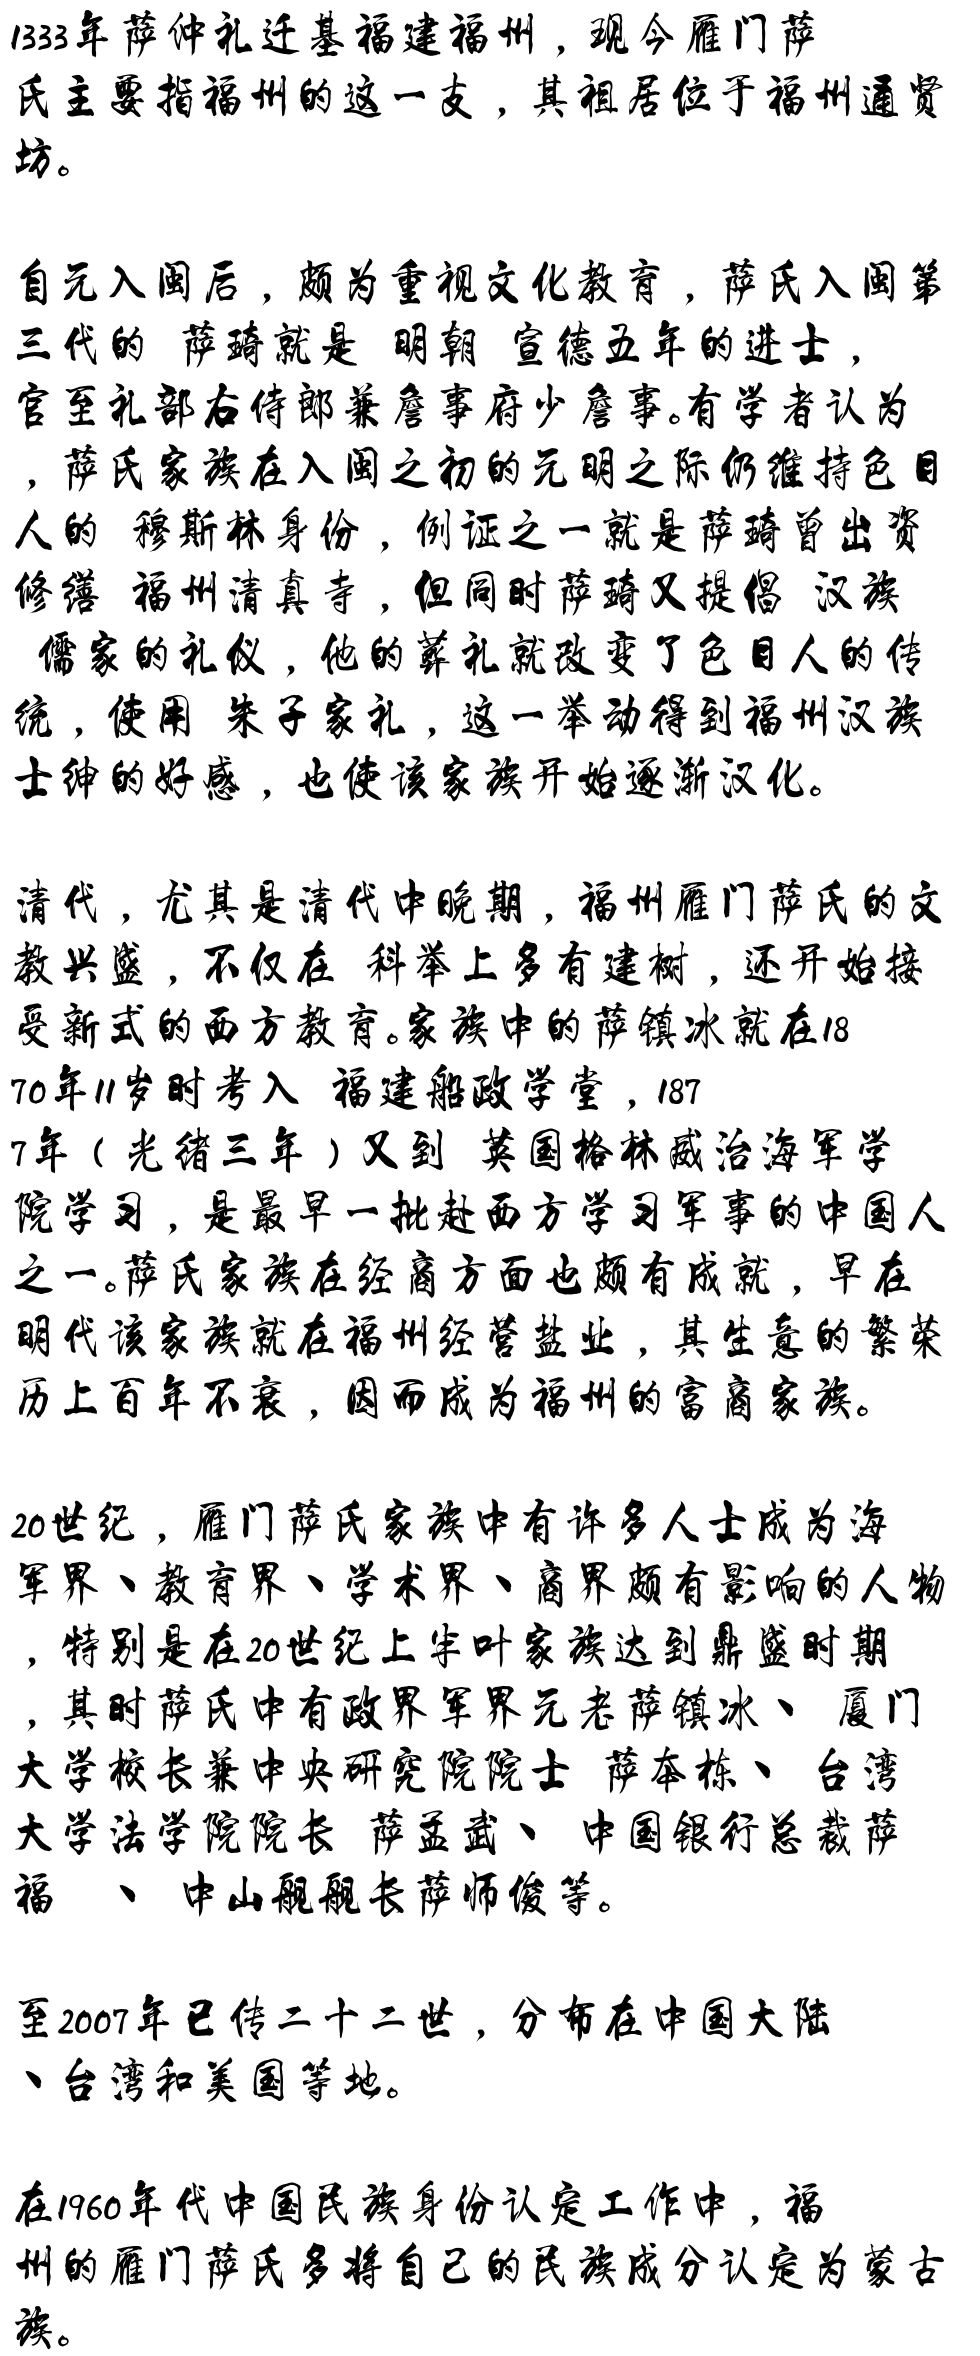 1333年萨仲礼迁基福建福州，现今雁门萨
氏主要指福州的这一支，其祖居位于福州通贤
坊。
自元入闽后，颇为重视文化教育，萨氏入闽第
三代的 萨琦就是 明朝 宣德五年的进士，
官至礼部右侍郎兼詹事府少詹事。有学者认为
，萨氏家族在入闽之初的元明之际仍维持色目
人的 穆斯林身份，例证之一就是萨琦曾出资
修缮 福州清真寺，但同时萨琦又提倡 汉族
儒家的礼仪，他的葬礼就改变了色目人的传
统，使用 朱子家礼，这一举动得到福州汉族
士绅的好感，也使该家族开始逐渐汉化。
清代，尤其是清代中晚期，福州雁门萨氏的文
教兴盛，不仅在 科举上多有建树，还开始接
受新式的西方教育。家族中的萨镇冰就在18
70年11岁时考入 福建船政学堂，187
7年（光绪三年）又到 英国格林威治海军学
院学习，是最早一批赴西方学习军事的中国人
之一。萨氏家族在经商方面也颇有成就，早在
明代该家族就在福州经营盐业，其生意的繁荣
历上百年不衰，因而成为福州的富商家族。
20世纪，雁门萨氏家族中有许多人士成为海
军界、教育界、学术界、商界颇有影响的人物
，特别是在20世纪上半叶家族达到鼎盛时期
，其时萨氏中有政界军界元老萨镇冰、 厦门
大学校长兼中央研究院院士 萨本栋、 台湾
大学法学院院长 萨孟武、 中国银行总裁萨
福 、 中山舰舰长萨师俊等。
至2007年已传二十二世，分布在中国大陆
、台湾和美国等地。
在1960年代中国民族身份认定工作中，福
州的雁门萨氏多将自己的民族成分认定为蒙古
族。